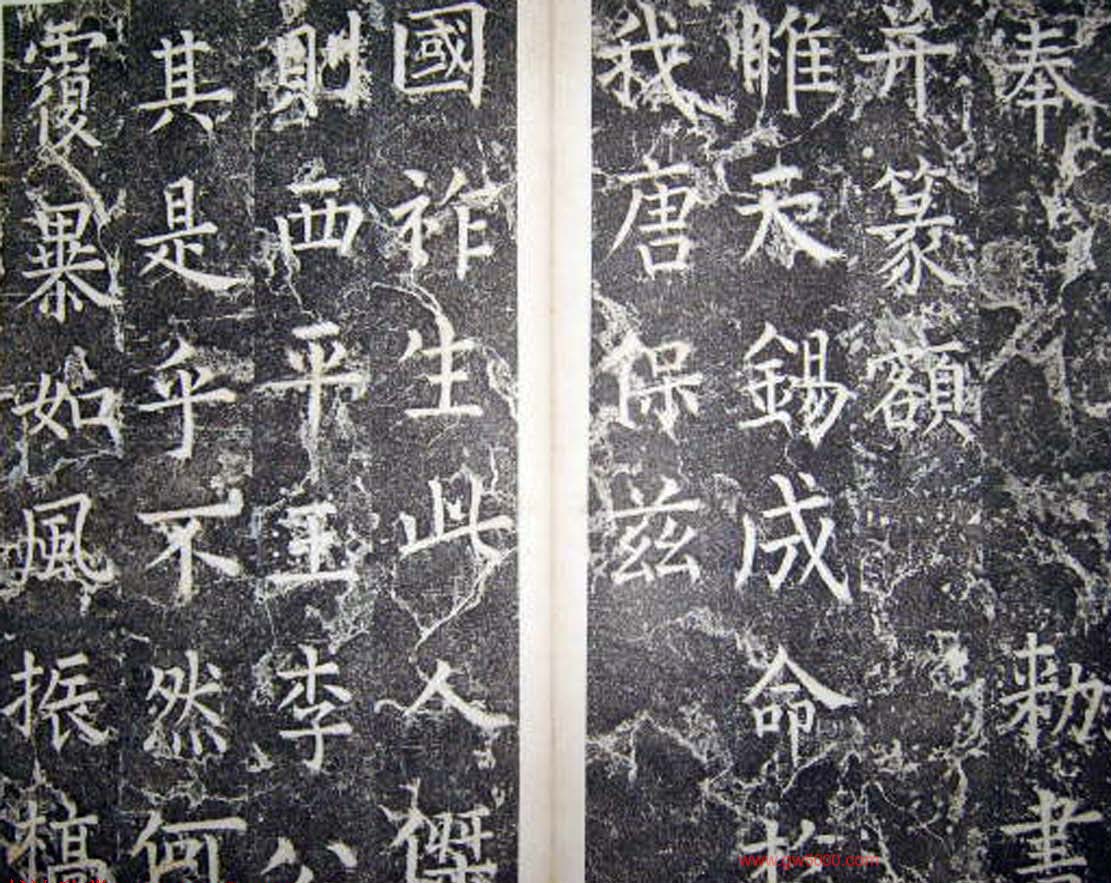 奉勑書
并篆額
惟天錫成命扵
我唐保兹
國祚生此人傑
則西平王李公
其是乎不然何
覆暴如風振槁